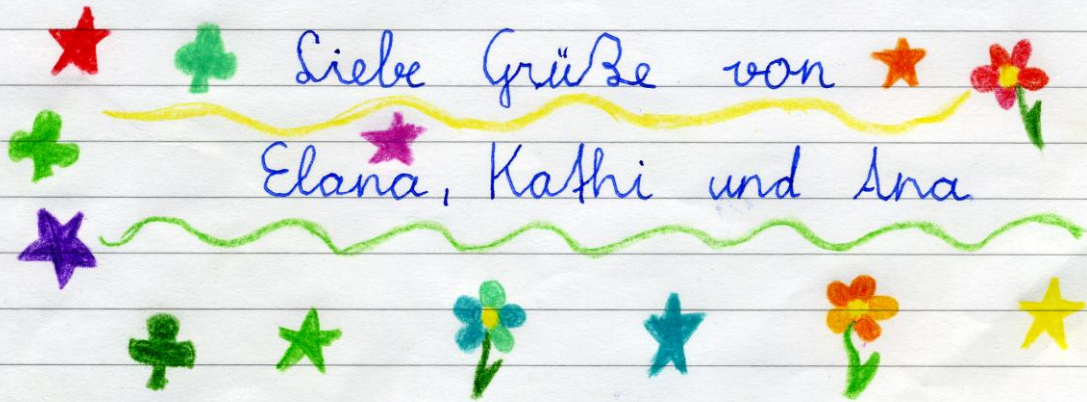 Liebe Grüße von
Elana, Kathi und Ana